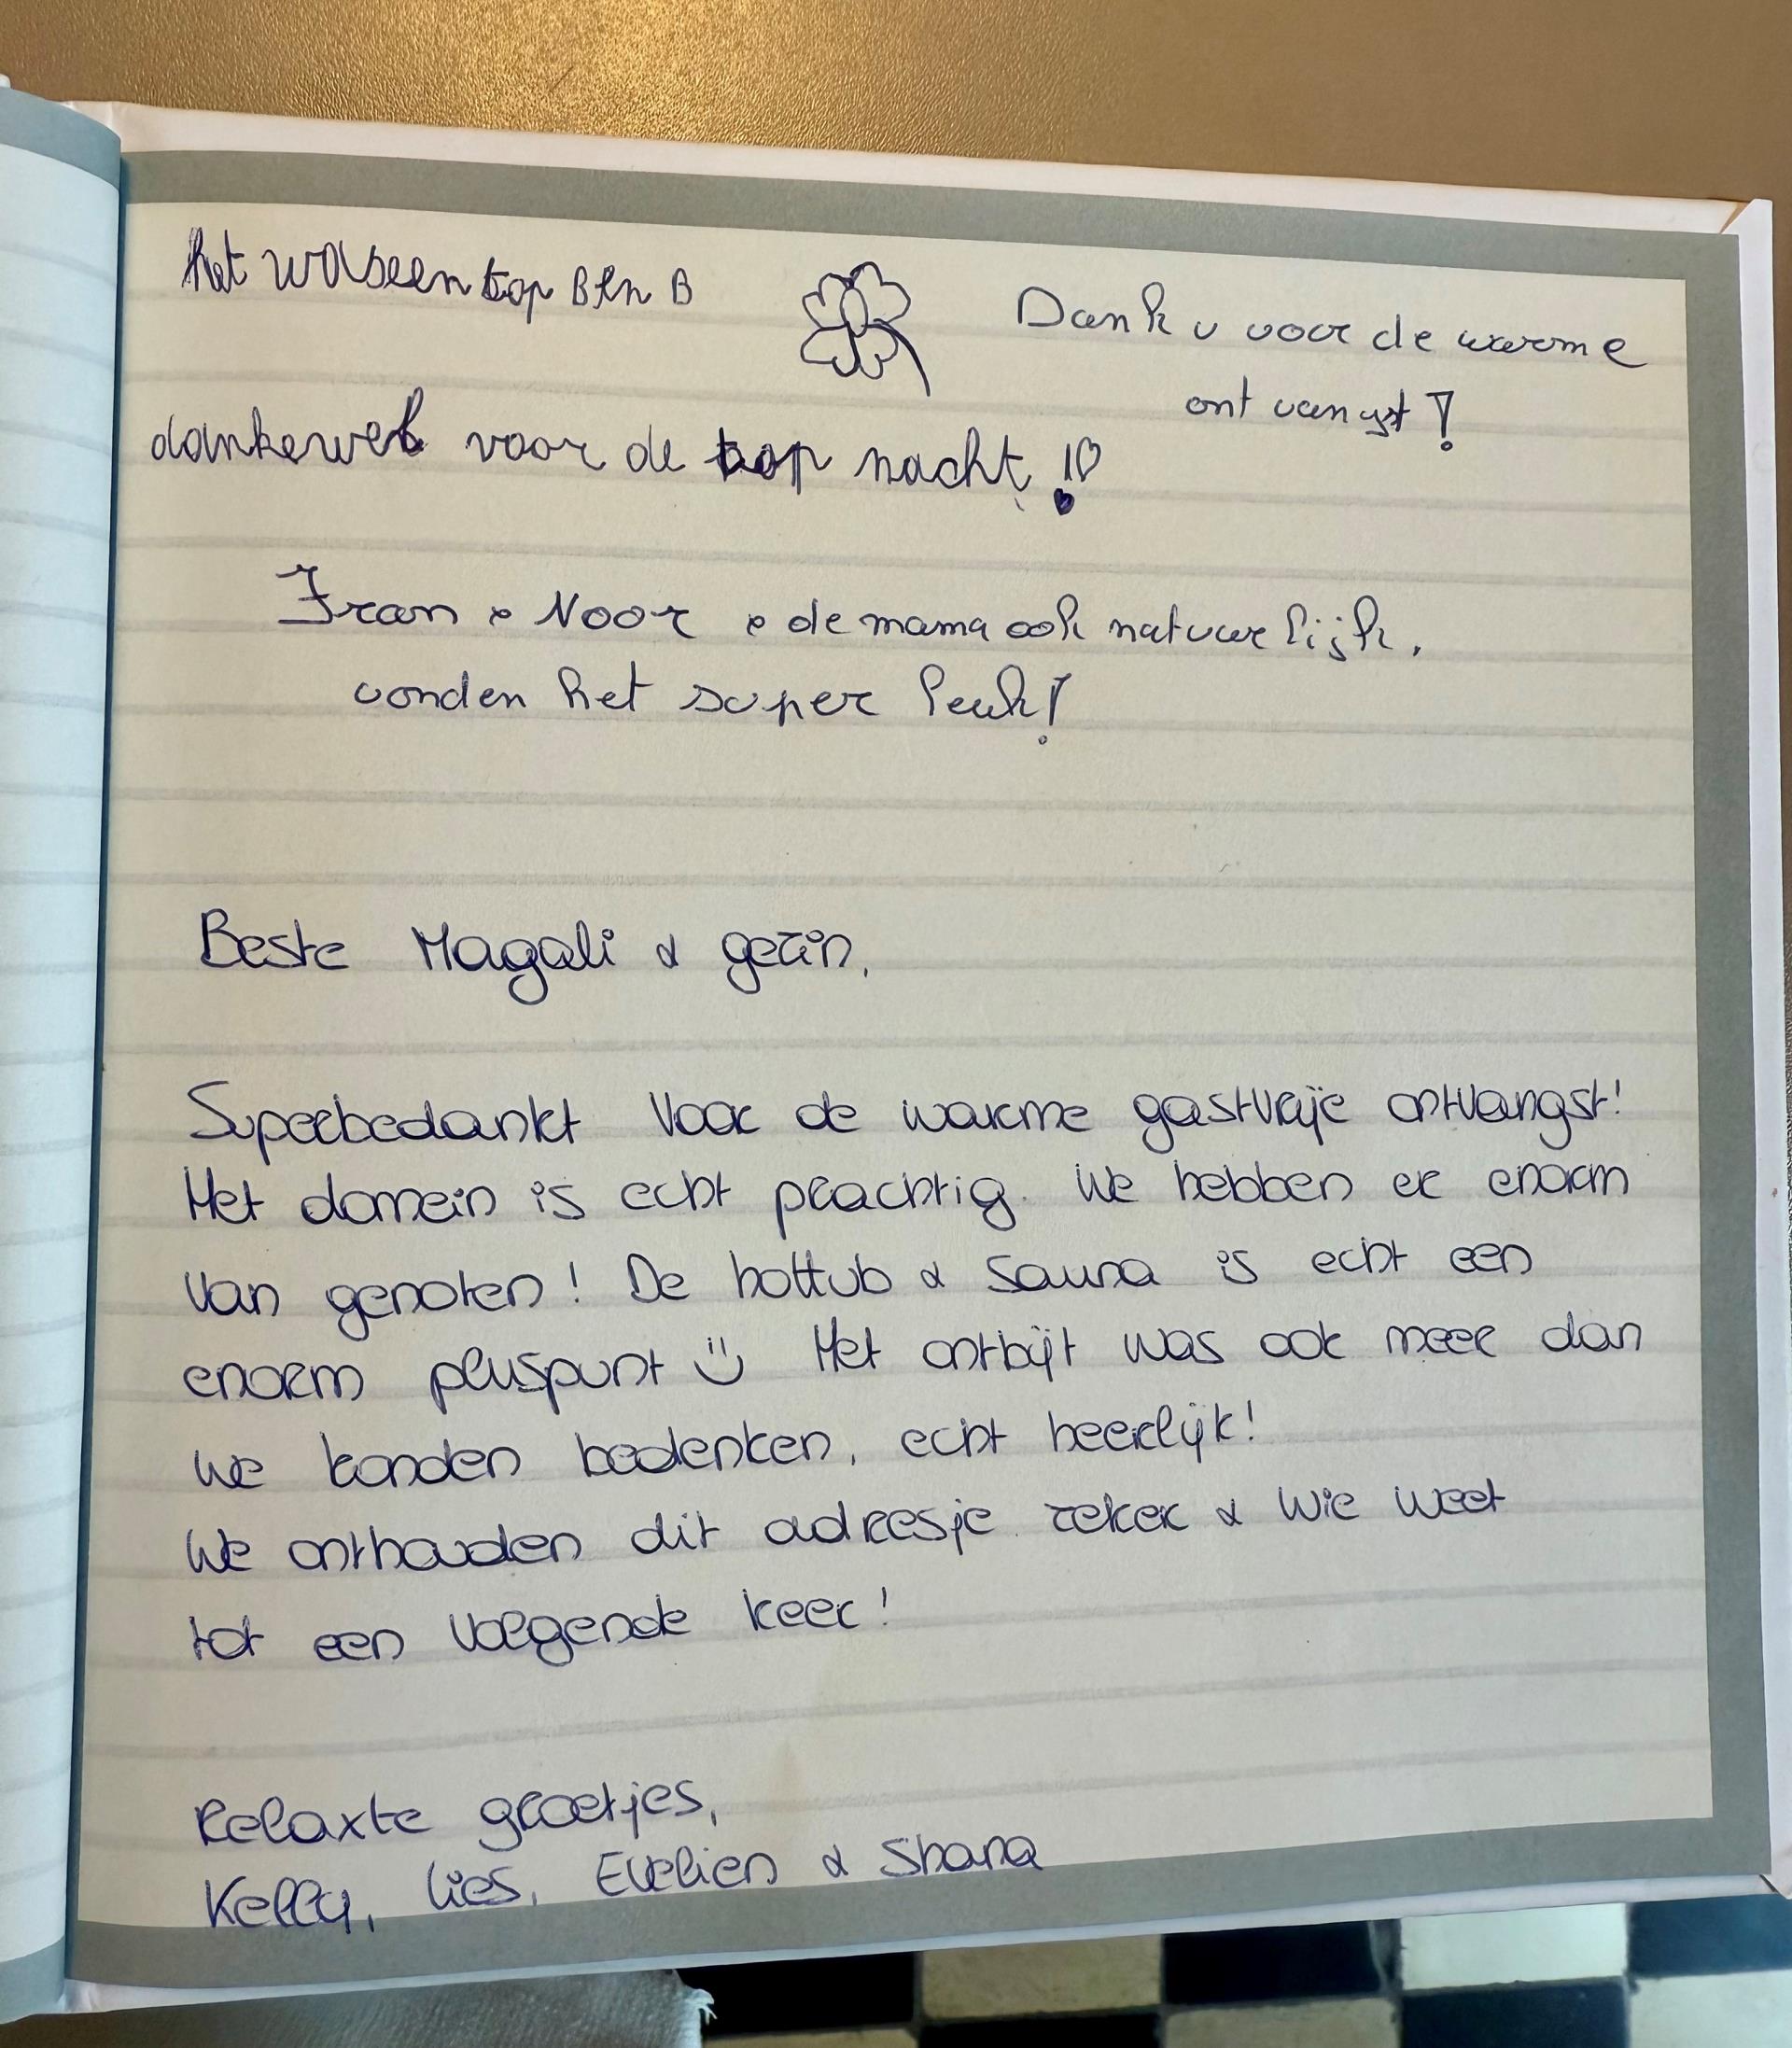 het was een top B en B
Dank u voor de warme
ontvangst!
dankewel voor de top nacht!
Fran & Noor & de mama ook natuurlijk,
vonden het super leuk!
Beste Magali & gezin,
Superbedankt voor de warme gastvrije ontvangst!
Het domein is echt prachtig. We hebben er enorm
van genoten! De hottub & sauna is echt een
enorm pluspunt ☺ Het ontbijt was ook meer dan
we konden bedenken, echt heerlijk!
We onthouden dit adresje zeker & wie weet
tot een volgende keer!
Relaxte groetjes,
Kelly, Lies, Evelien & Shana